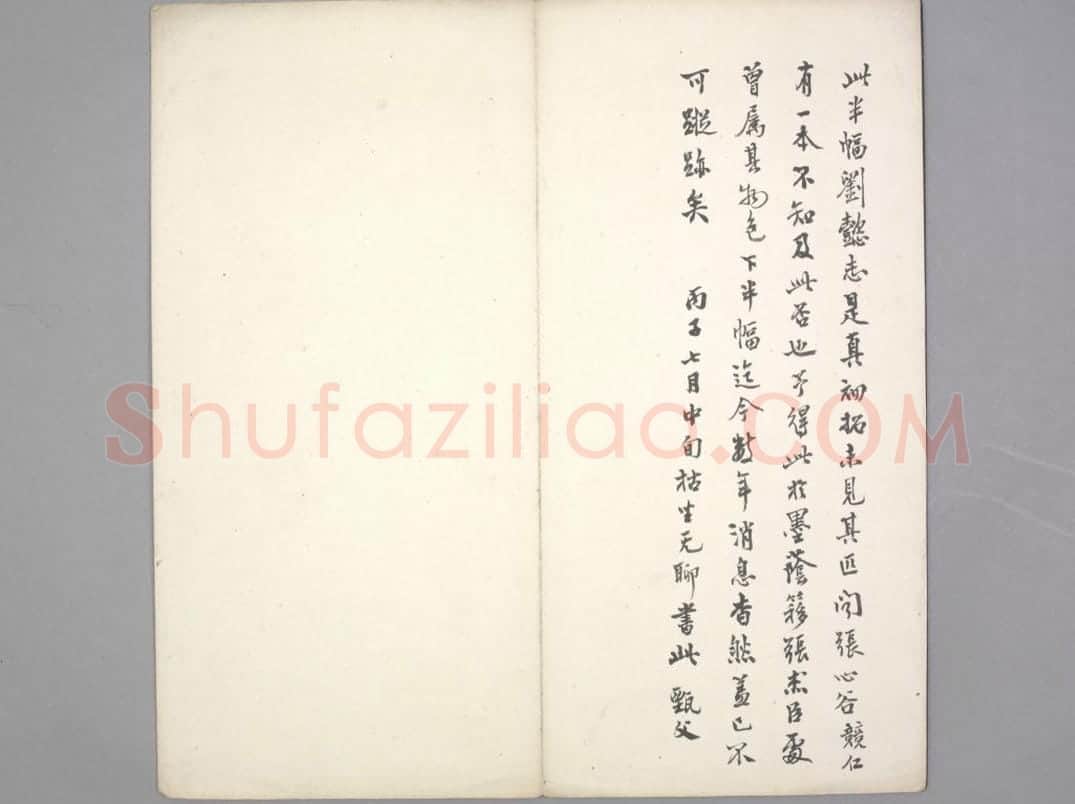 此半幅劉懿志是真初拓未見其匹聞張心谷競仁
有一本不知及此否也予得此於墨蔭簃張杰臣處
曾屬其物色下半幅迄今數年消息杳然蓋已不
可蹤跡矣 丙子七月中旬枯坐无聊書此 甄父
Shufaziliao.COM